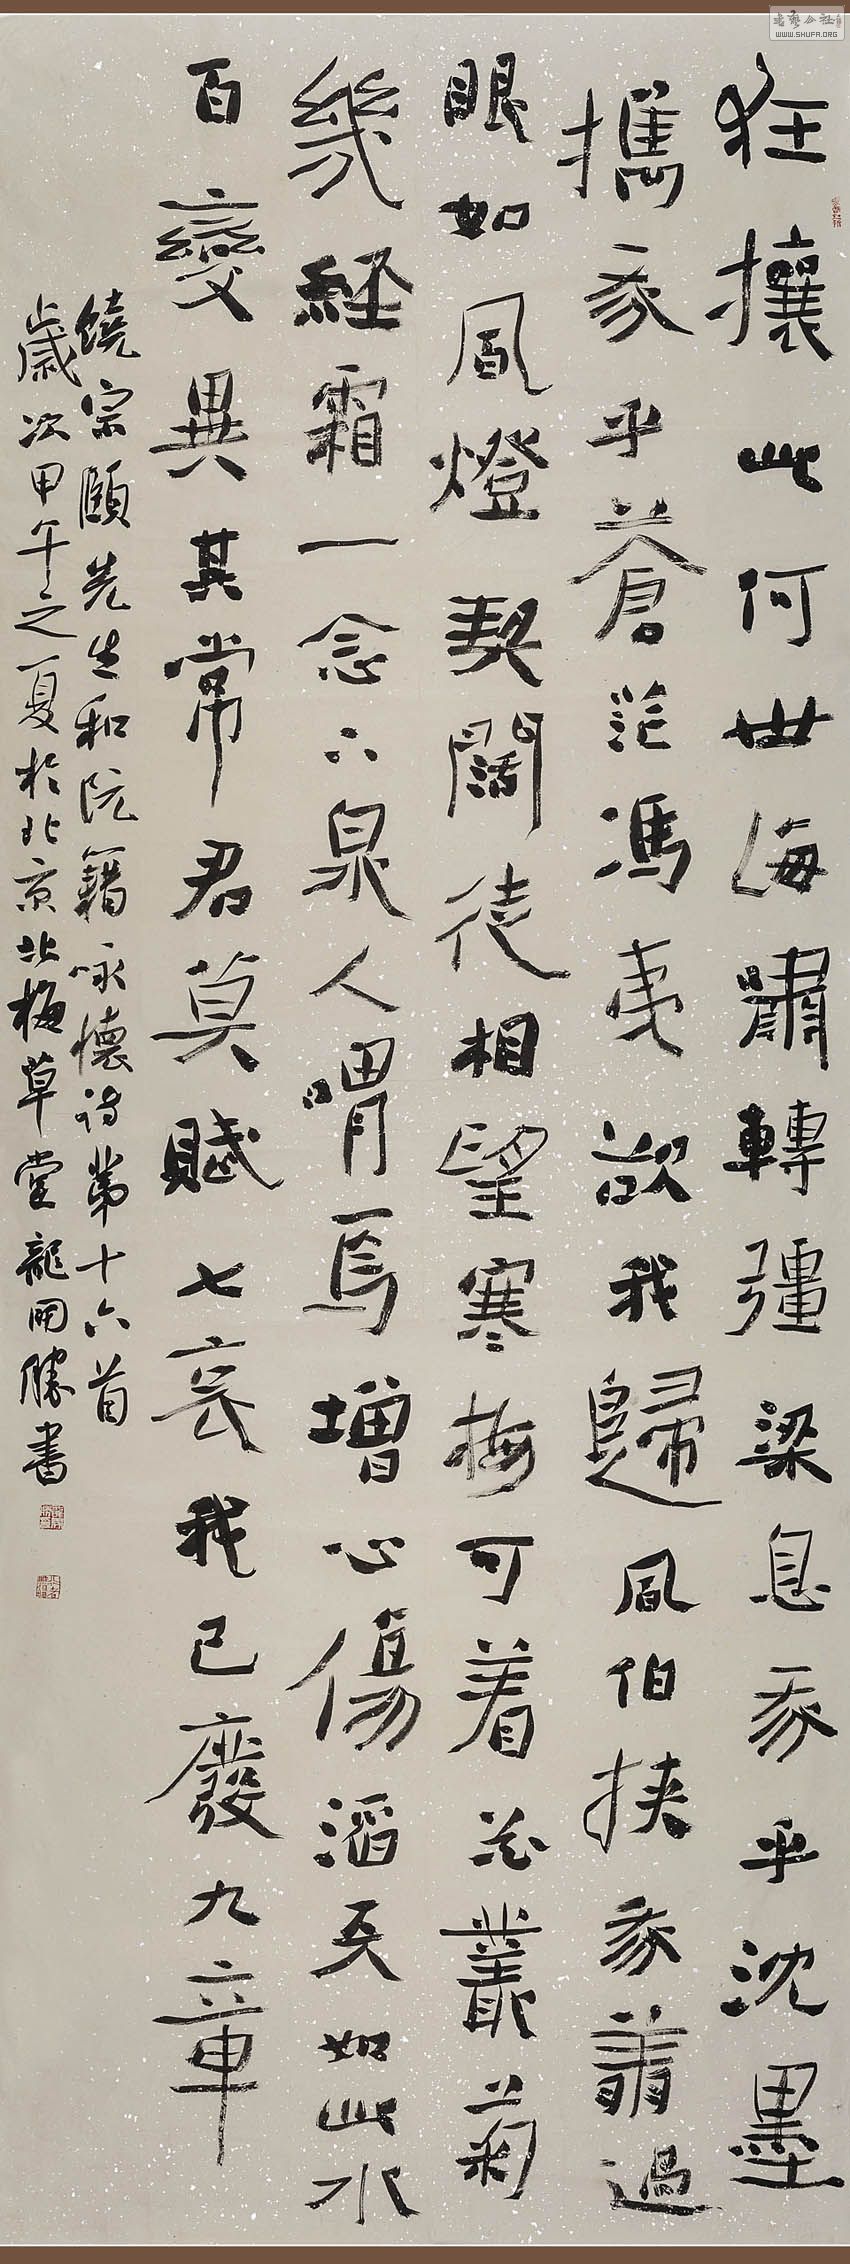 狂攘此何世海嘯轉彊梁息我乎沈墨
攜我乎蒼茫馮夷欲我歸風伯挾我翔過
眼如風燈契闊徒相望寒梅可着花叢菊
幾經霜一念下泉人喟焉增心傷滔天如此水
百變異其常君莫賦七哀我已廢九章
饒宗頤先生和阮籍咏懷诗第十六首
歲次甲午之夏於北京北梅草堂龍開勝書
WWW.SHUFA.ORG